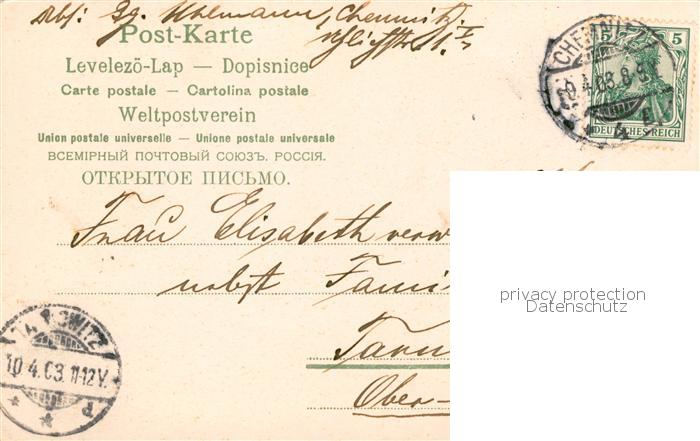 Abs: Gg. Uhlmann, Chemnitz
Post-Karte
Levelezö-Lap — Dopisnice
Carte postale — Cartolina postale
Weltpostverein
Union postale universelle — Unione postale universale
ВСЕМІРНЫЙ ПОЧТОВЫЙ СОЮЗЪ. РОССІЯ.
ОТКРЫТОЕ ПИСЬМО.
CHEMNITZ
5 5
DEUTSCHES REICH
Frau Elisabeth verw
nebst Fami
privacy protection
Datenschutz
Tarn
Ober-
10.4.03.11-12V.